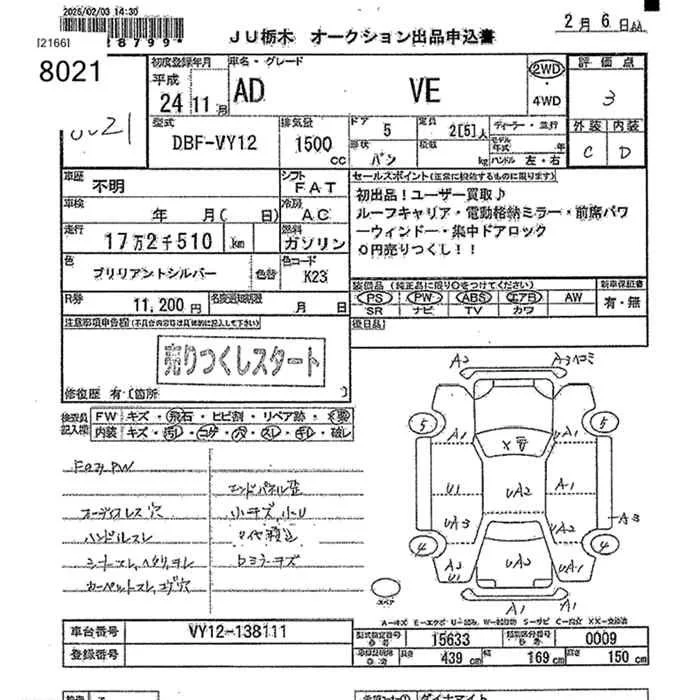 2025/02/03 14:30
[2166]
*8799*
JU栃木 オークション出品申込書
2月 6日
8021
初度登録年月
平成
24 11月
車名・グレード
AD VE
2WD
4WD
評価点
3
型式
DBF-VY12
排気量
1500 cc
ドア 5
形状 バン
定員 2[5]人
積載 kg
ディーラー・並行
モデル年式 年
ハンドル 左・右
外装 内装
C D
車歴 不明
シフト FAT
車検 年 月( 日)
冷房 AC
走行 17万2千510 km
燃料 ガソリン
色 ブリリアントシルバー 色替
色コード K23
R券 11,200円
名変期限 月 日
セールスポイント(正常に機能するものに限ります)
初出品!ユーザー買取♪
ルーフキャリア・電動格納ミラー・前席パワ
ーウィンドー・集中ドアロック
0円売りつくし!!
装備品(純正品に限り○をつけてください)
PS PW ABS エアB AW
SR ナビ TV カワ
新車保証書
有・無
後日品
注意事項申告欄
売りつくしスタート
修復歴 有(箇所 )
検査員記入欄
FW キズ・飛石・ヒビ割・リペア跡・要
内装 キズ・汚レ・コゲ・穴・スレ・キレ・破レ
エンドパネル
オーディオレス穴
小キズ、小U
ハンドルスレ
カーペットスレ、コゲ穴
A2
A3
5
5
A1
A1
U1
UA3
UA2
A1
A2
A3
4
4
UA2
UA1
A1
A1
スペア
車台番号 VY12-138111
登録番号
型式指定番号 15633
類別区分番号 0009
長さ 439 cm
幅 169 cm
高さ 150 cm
ダイナマイト